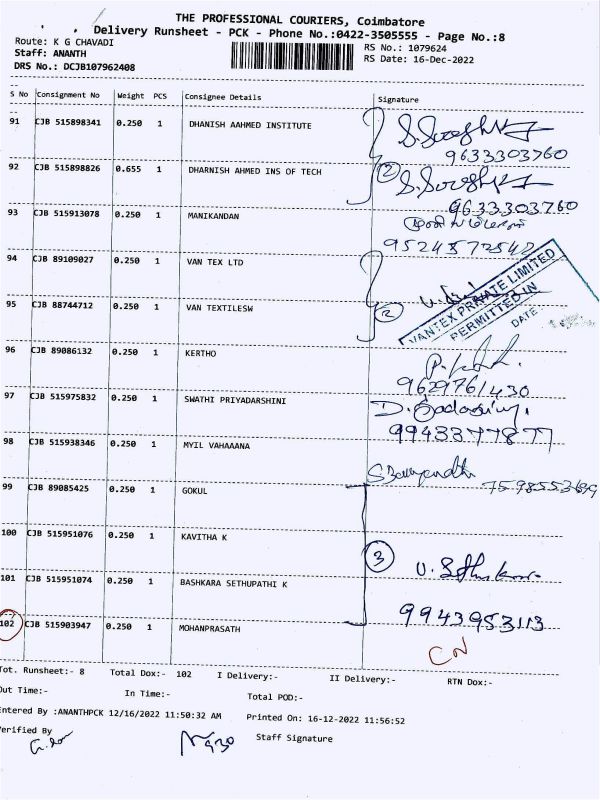 THE PROFESSIONAL COURIERS, Coimbatore
Delivery Runsheet - PCK - Phone No.:0422-3505555 - Page No.:8
Route: K G CHAVADI
RS No.: 1079624
Staff: ANANTH
RS Date: 16-Dec-2022
DRS No.: DCJB107962408
S No Consignment No Weight PCS Consignee Details Signature
91 CJB 515898341 0.250 1 DHANISH AAHMED INSTITUTE
9633303760
92 CJB 515898826 0.655 1 DHARNISH AHMED INS OF TECH 2
9633303760
93 CJB 515913078 0.250 1 MANIKANDAN
94 CJB 89109027 0.250 1 VAN TEX LTD
VANTEX PRIVATE LIMITED
PERMITTED IN
DATE
95 CJB 88744712 0.250 1 VAN TEXTILESW 2
96 CJB 89086132 0.250 1 KERTHO
9629761430
97 CJB 515975832 0.250 1 SWATHI PRIYADARSHINI
9943377877
98 CJB 515938346 0.250 1 MYIL VAHAAANA
99 CJB 89085425 0.250 1 GOKUL
100 CJB 515951076 0.250 1 KAVITHA K
3
101 CJB 515951074 0.250 1 BASHKARA SETHUPATHI K
9943953113
102 CJB 515903947 0.250 1 MOHANPRASATH
CN
Tot. Runsheet:- 8 Total Dox:- 102 I Delivery:- II Delivery:- RTN Dox:-
Out Time:- In Time:- Total POD:-
Entered By :ANANTHPCK 12/16/2022 11:50:32 AM Printed On: 16-12-2022 11:56:52
Verified By
Staff Signature